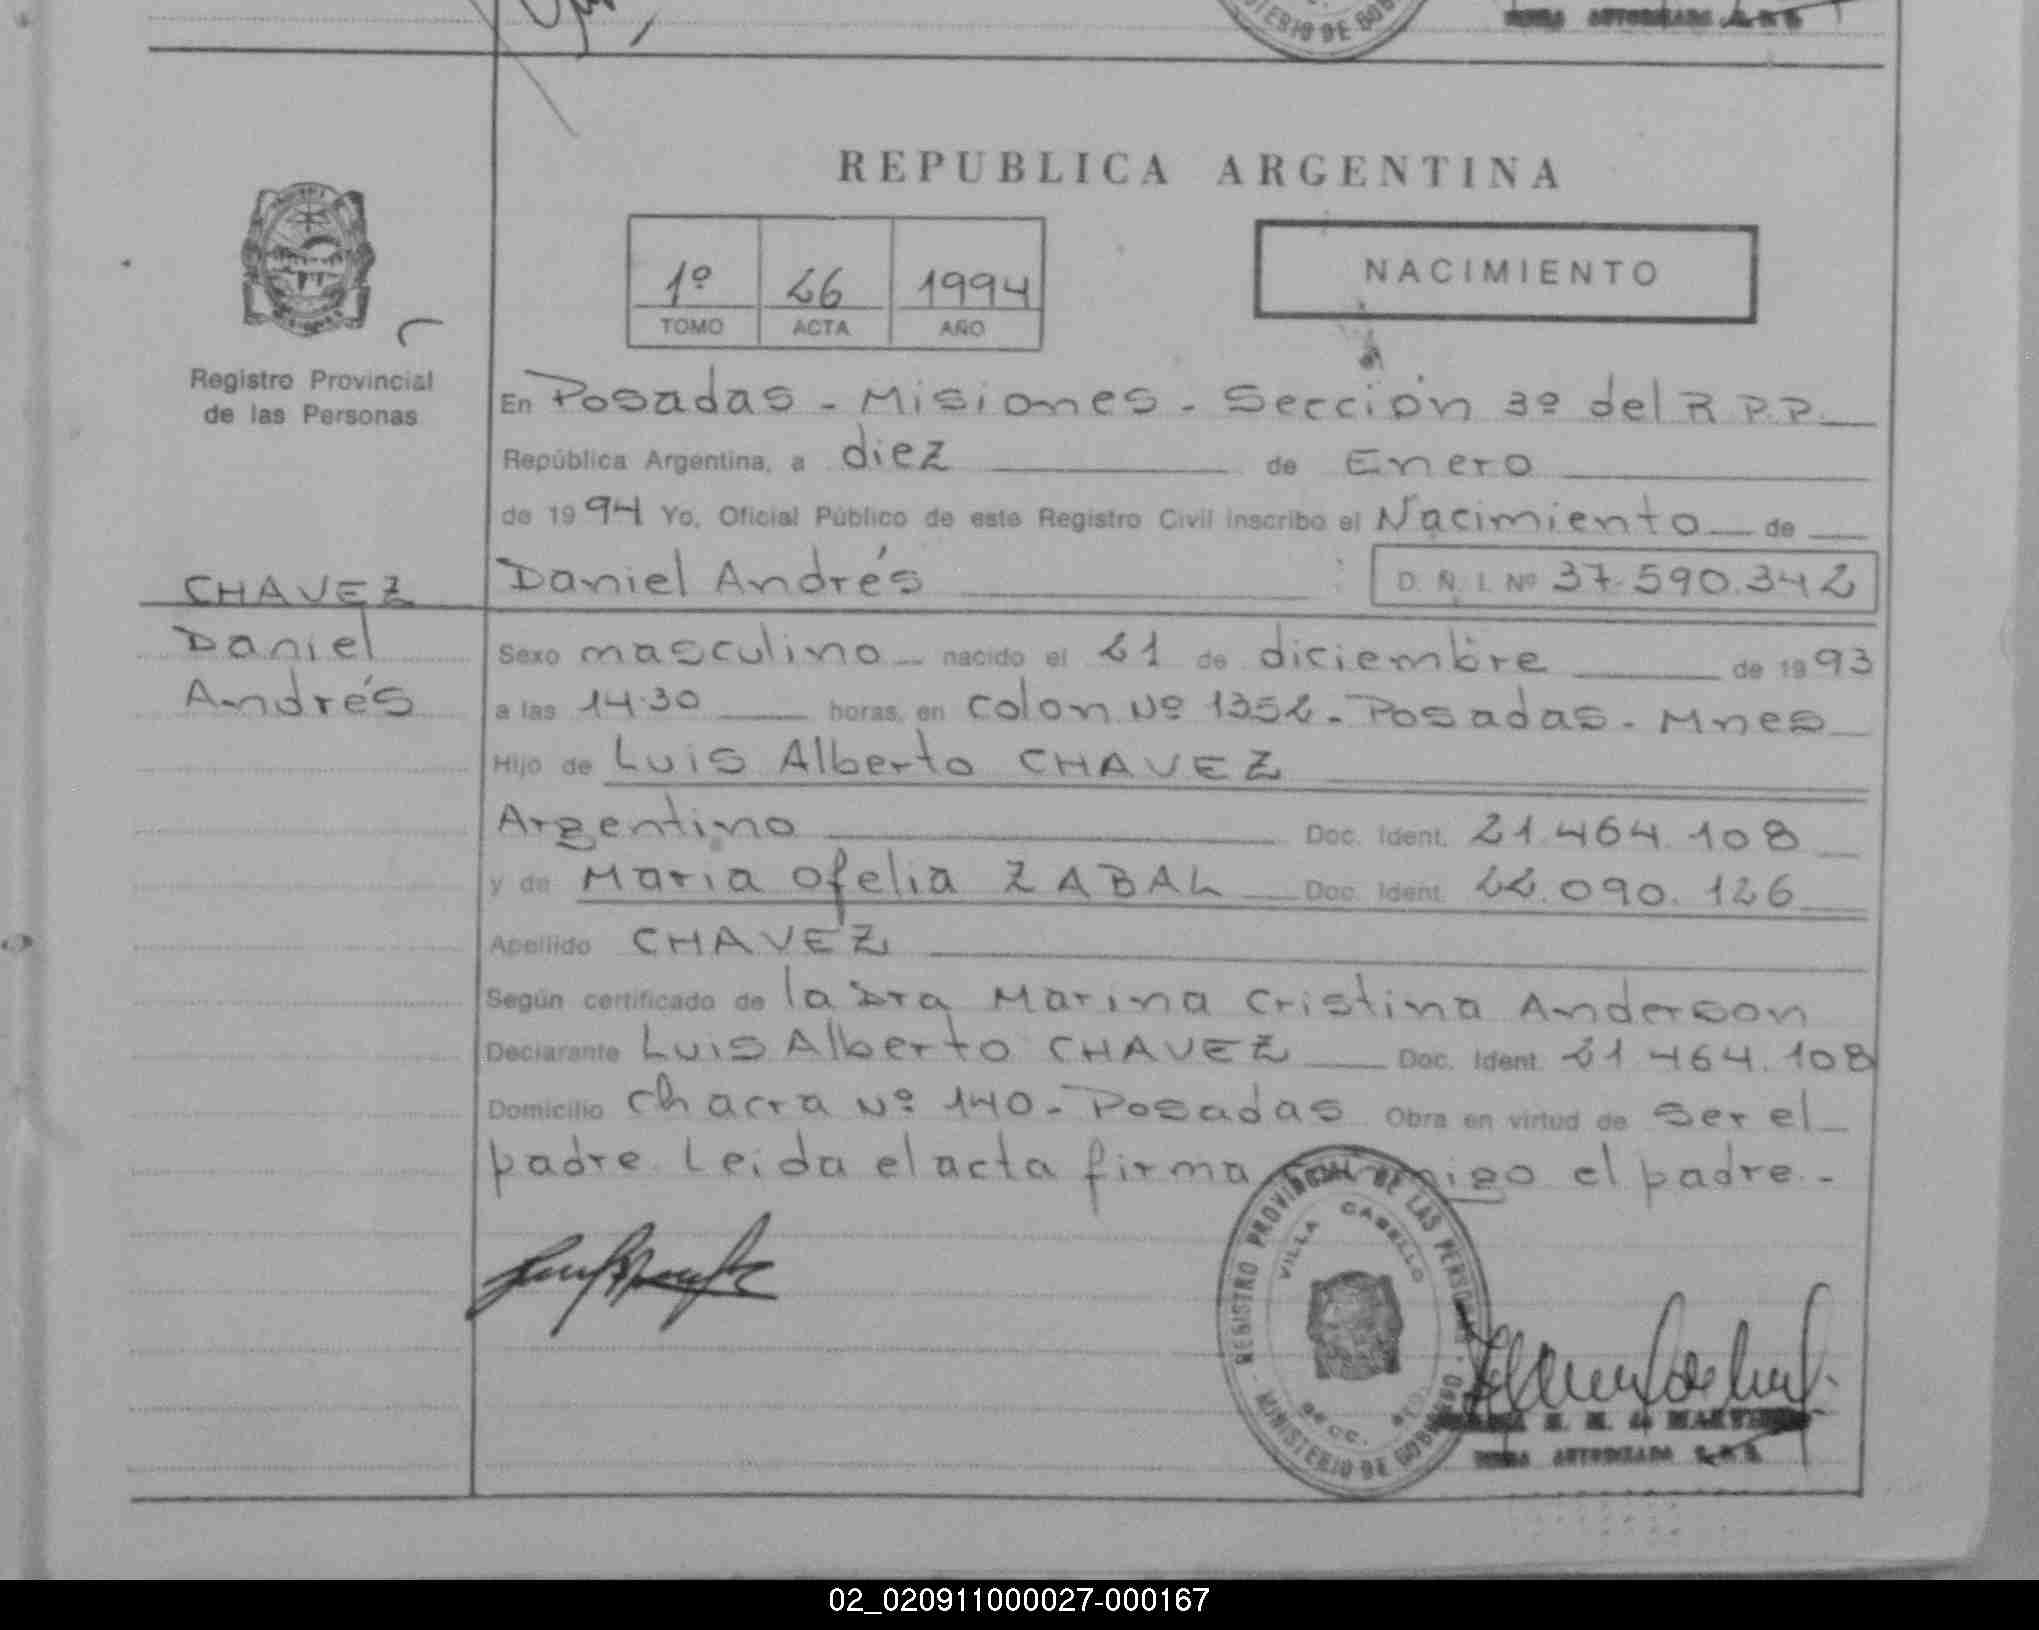 REPUBLICA ARGENTINA
1º 26 1994
TOMO ACTA AÑO
NACIMIENTO
Registro Provincial
de las Personas
En Posadas - Misiones - Sección 3º del R.P.P.
República Argentina, a diez de Enero
de 1994 Yo, Oficial Público de este Registro Civil inscribo el Nacimiento de
Daniel Andrés D. N. I. Nº 37.590.342
CHAVEZ
Daniel
Andrés
Sexo masculino nacido el 21 de diciembre de 1993
a las 14.30 horas, en Colon Nº 1352 - Posadas - Mnes
Hijo de Luis Alberto CHAVEZ
Argentino Doc. Ident. 21.464.108
y de Maria Ofelia ZABAL Doc. Ident. 22.090.126
Apellido CHAVEZ
Según certificado de la Dra Marina Cristina Anderson
Declarante Luis Alberto CHAVEZ Doc. Ident. 21.464.108
Domicilio Chacra Nº 140 - Posadas Obra en virtud de ser el
padre. Leida el acta firma el padre.-
REGISTRO PROVINCIAL DE LAS PERSONAS
VILLA CABELLO
SECC.
MINISTERIO DE GOBIERNO
AUTORIZADA
02_020911000027-000167